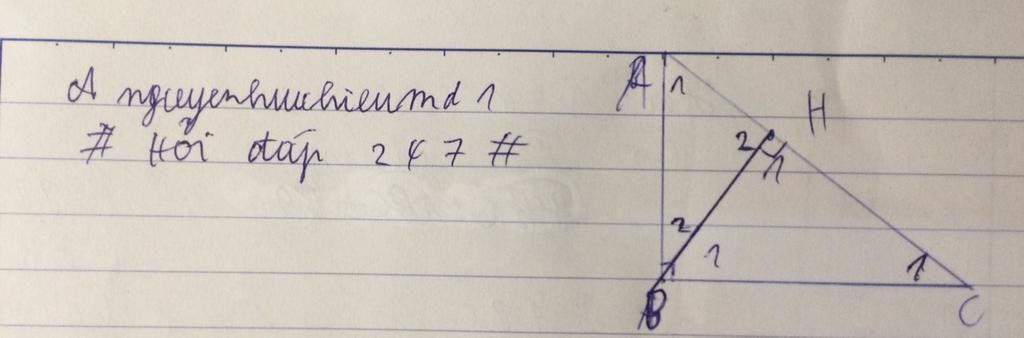 A nguyenhuuhieumd 1
# Hỏi đáp 247 #
A
1
H
2
1
2
1
1
B
C